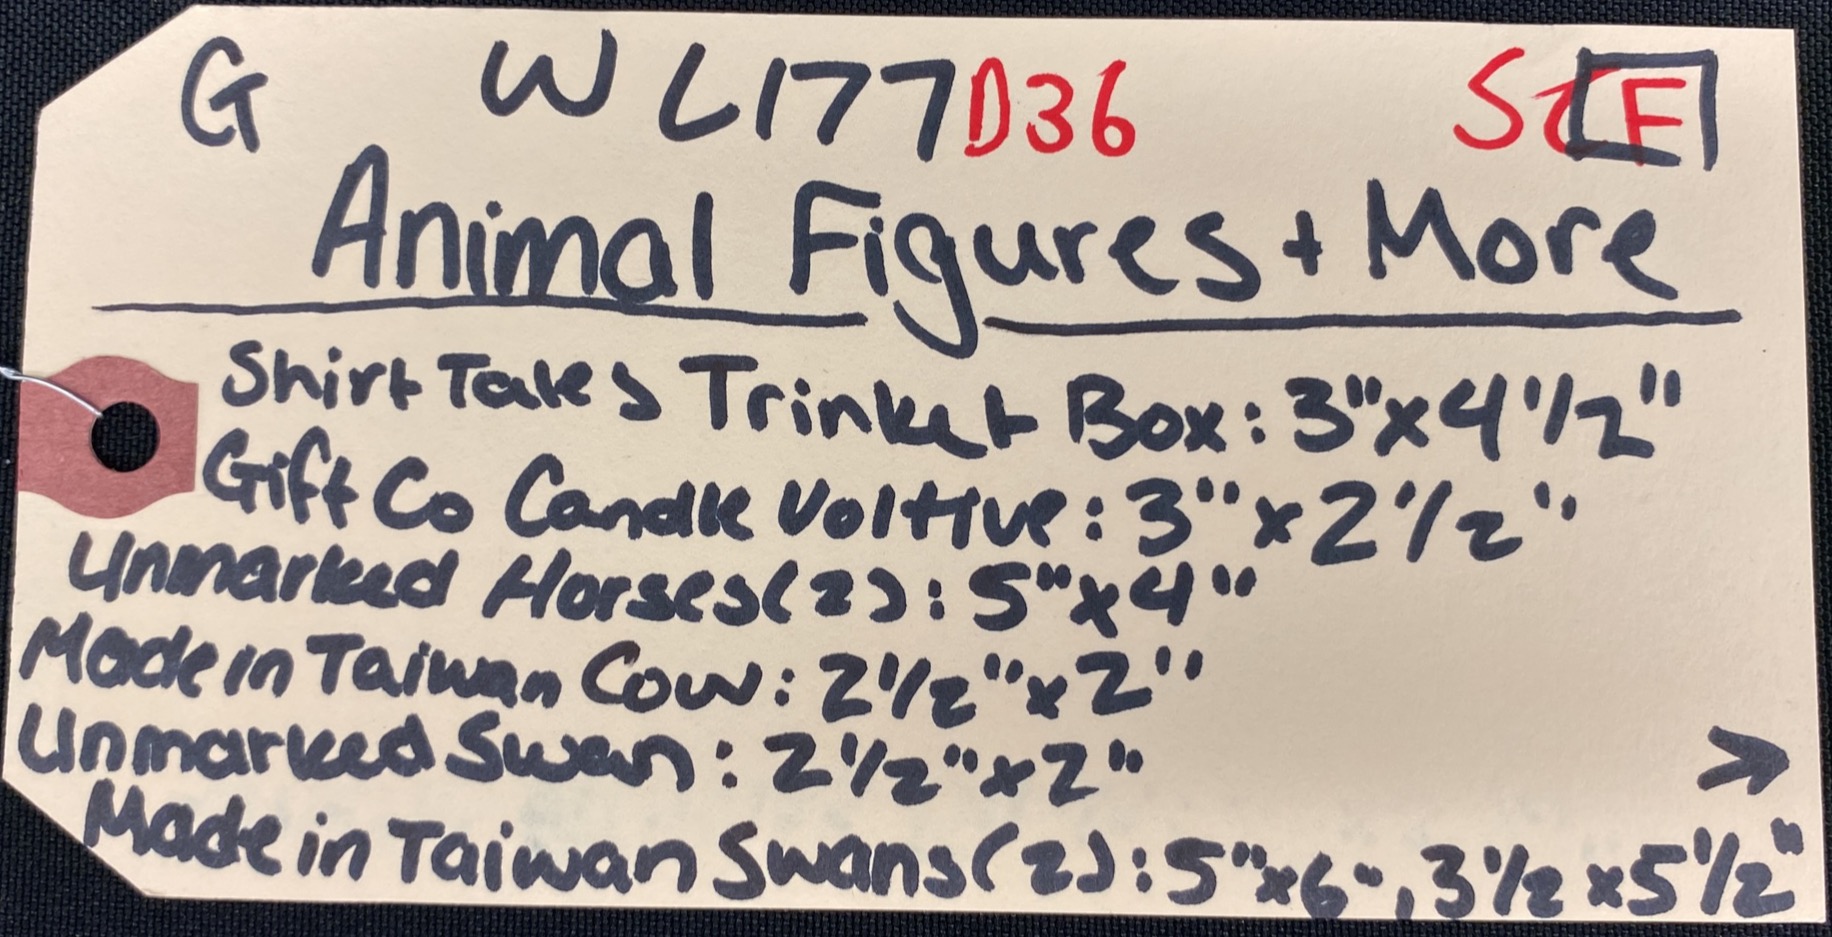 G WL177 D36 SCF
Animal Figures + More
Shirt Tales Trinket Box: 3"x4 1/2"
Gift Co Candle Voltive: 3"x2 1/2"
Unmarked Horses(2): 5"x4"
Made in Taiwan Cow: 2 1/2"x2"
Unmarked Swan: 2 1/2"x2"
→
Made in Taiwan Swans(2): 5"x6", 3 1/2x5 1/2"